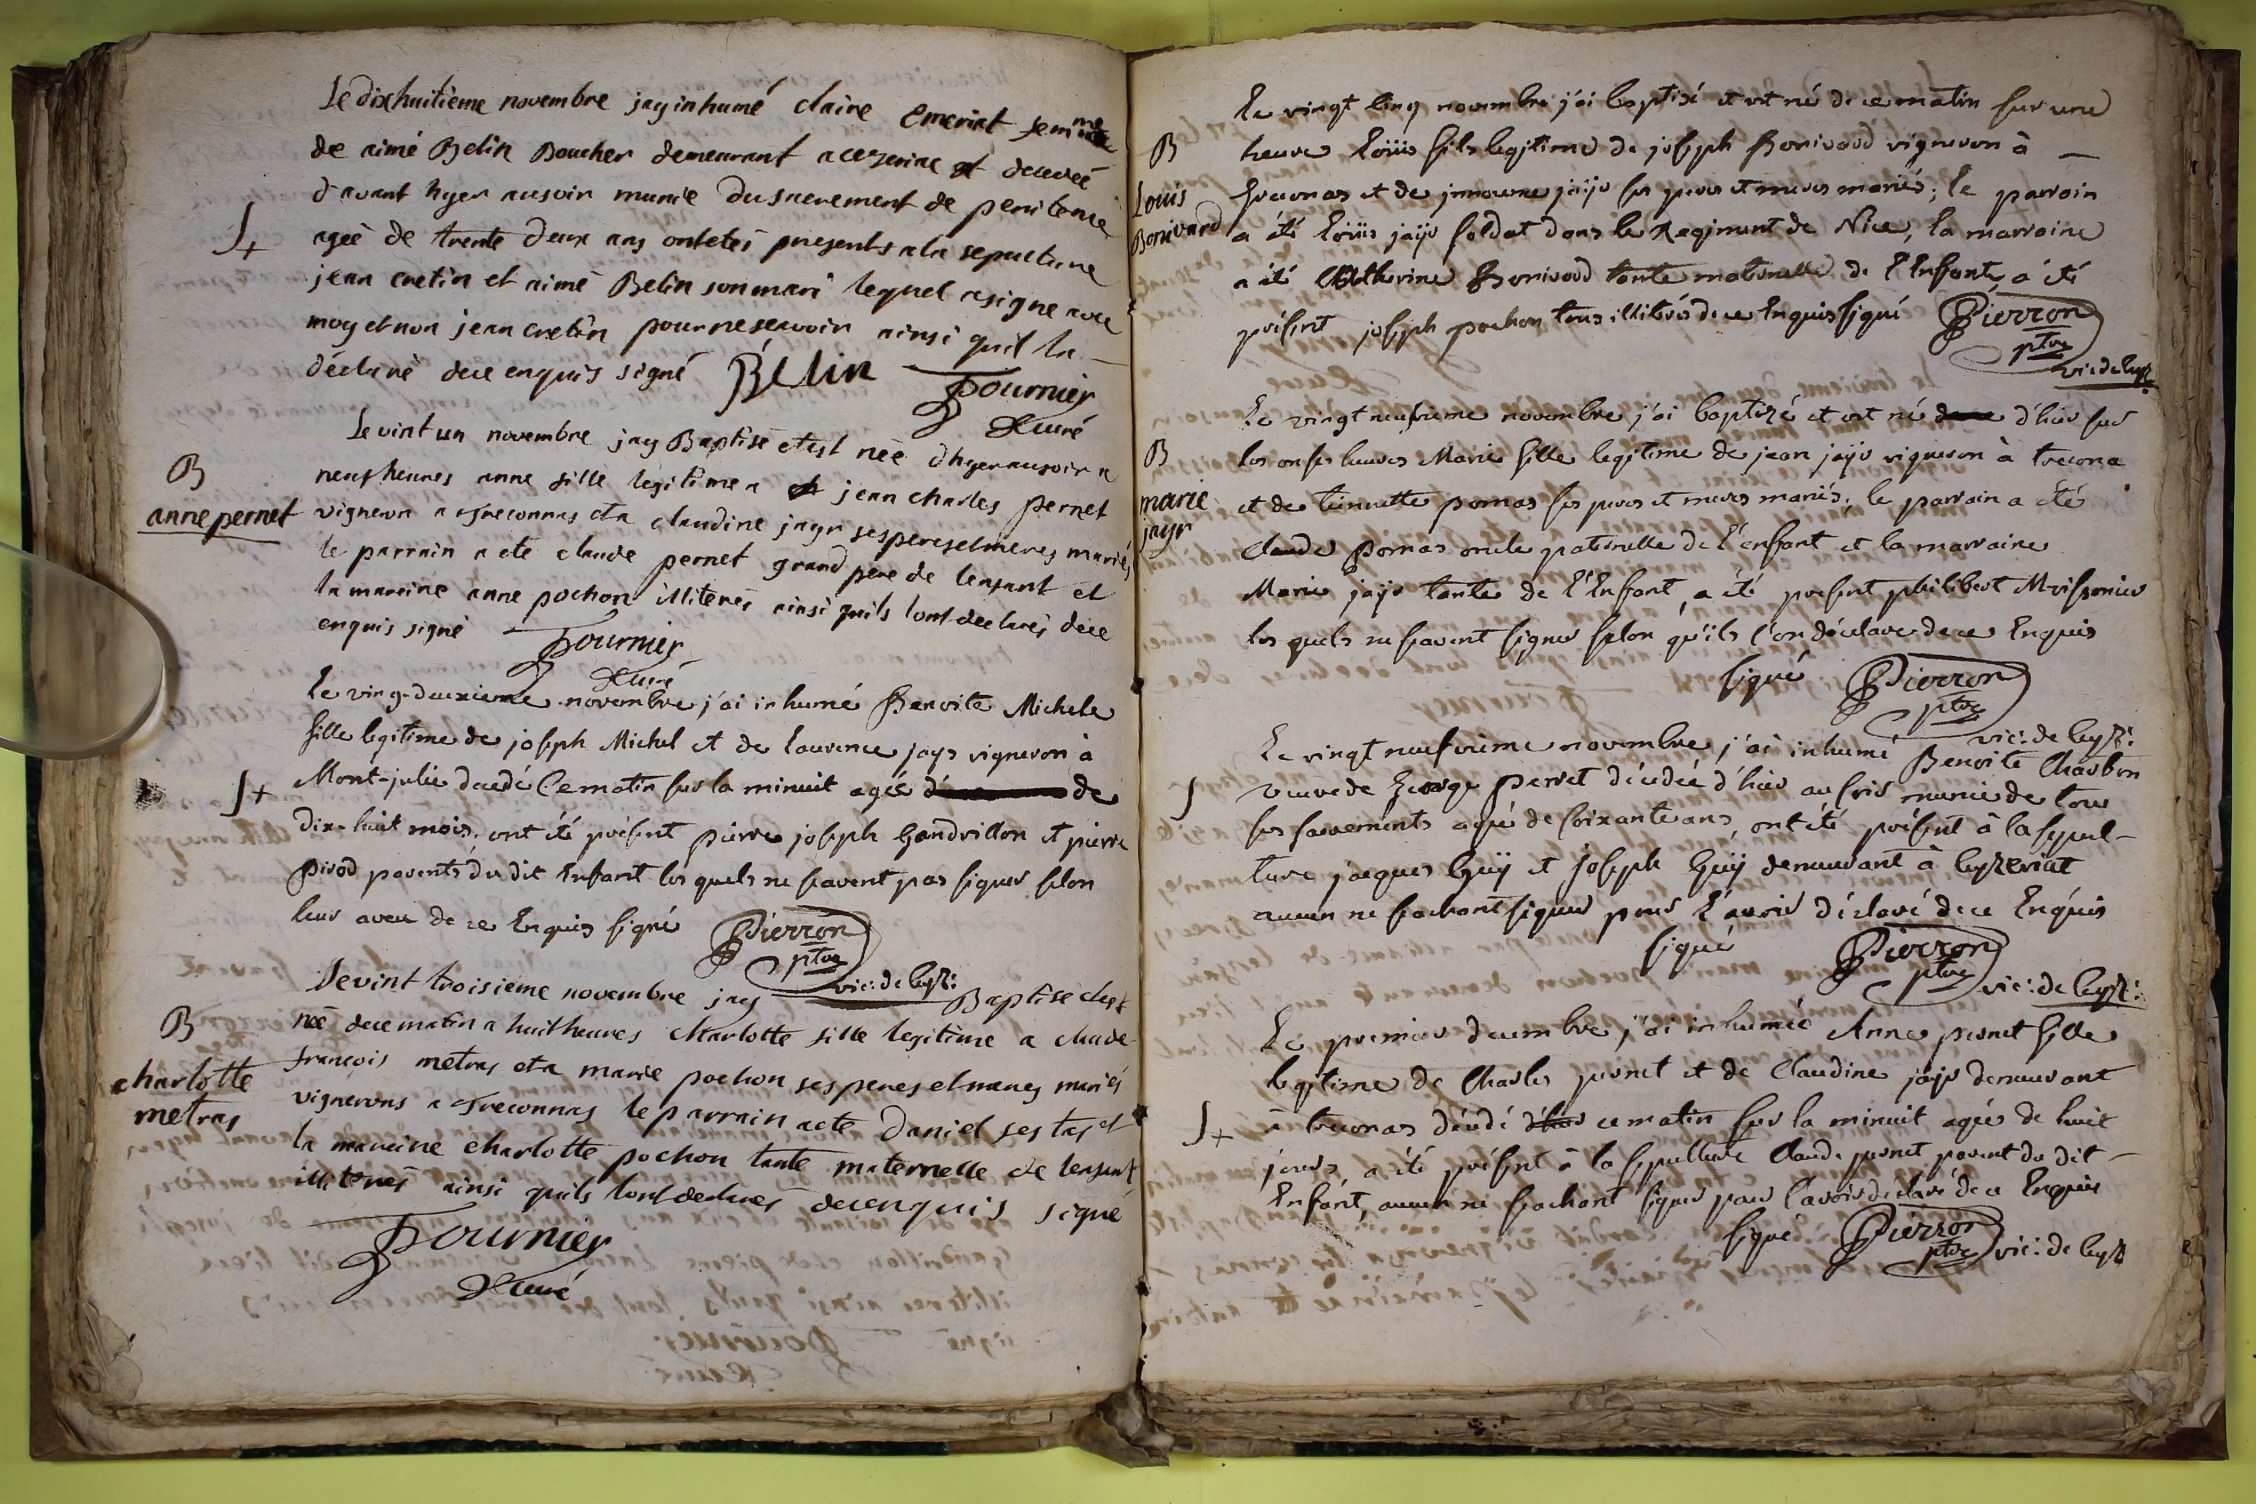 Le dixhuitieme novembre jay inhumé claire emeriat femme
de aimé Belin Boucher demeurant a ceyzeriac et decedeé
d'avant hyer ausoir munie du sacrement de penitence
S+
ageè de trente deux ans ont etés presents a la sepulture
jean cretin et aimé Belin son mari lequel a signe avec
moy et non jean cretin pour ne scavoir ainsi quil la
déclaré dece enquis signé Belin fournier
Curé
Le vint un novembre jay Baptisé et est née dhyer ausoir a
B
anne pernet
neuf heures anne fille legitime a jean charles pernet
vigneron a treconnas et a claudine jayr ses peres et meres mariés
le parrain a eté claude pernet grand pere de lenfant et
la mareine anne pochon illiterés ainsi quils lont declarés dece
enquis signé fournier
Curé
Le ving-deuxieme novembre j'ai inhumé Benoite Michele
fille legitime de joseph Michel et de laurence jays vigneron à
S+
Mont-julie decedé Ce matin sur la minuit agée de
dix-huit mois, ont été présent pierre joseph Gandrillon et pierre
pirod parents du dit Enfant les quels ne savent pas signer selon
leur aveu de ce Enquis signé Pierron
ptre
vic: de Ceyz:
Le vint troisieme novembre jay Baptise et est
B
charlotte
metras
neé dece matin a huit heures charlotte fille legitime a claude
francois metras et a marie pochon ses peres et meres mariés
vignerons a treconnas le parrain a ete daniel sestas et
la mareine charlotte pochon tante maternelle de lenfant
illiterés ainsi quils lont declarés decenquis signé
fournier
Curé
Le vingt cinq novembre j'ai baptisé et est né de ce matin sur une
B
Louis
Bonivard
heure Loüis fils legitime de joseph Bonivard vigneron à
treconas et de jays ses peres et meres mariés; le parrain
a été Loüis jays soldat dans le Regiment de Nice, la marraine
a été Catherine Bonivard tante maternelle de l'Enfant, a été
présent joseph pochon tous illiterés de ce Enquis signé Pierron
ptre
vic de Ceyz
Le vingt neuvieme novembre j'ai baptizé et est né d'hier sur
B
marie
jayr
les onse heures Marie fille legitime de jean jays vigneron à trecona
et de pomas ses peres et meres mariés; le parrain a été
Claude pomas oncle paternelle de l'enfant et la marraine
Marie jays tante de l'Enfant, a été présent philibert Moissonier
les quels ne savent signer selon qu'ils l'on déclare de ce Enquis
signé Pierron
ptre
vic: de Ceyz:
Le vingt neufvieme novembre j'ai inhumé Benoite Charbon
S
veuve de george perret décédée d'hier au soir munie de tous
ses sacrements agée de soixante ans, ont été présent à la sepul-
ture jacques Guÿ et joseph Guÿ demeurant à Ceyzeriat
aucun ne sachant signer pour l'avoir déclaré de ce Enquis
signé Pierron
ptre
vic: de Ceyz:
Le premier decembre j'ai inhumée Anne pernet fille
legitime de Charles pernet et de Claudine jays demeurant
S+
à treconas décédé ce matin sur la minuit agée de huit
jours, a été présent à la sepulture Claude pernet parent du dit
Enfant, aucun ne sachant signer pour l'avoir declaré de ce Enquis
signé Pierron
ptre vic: de Ceyz